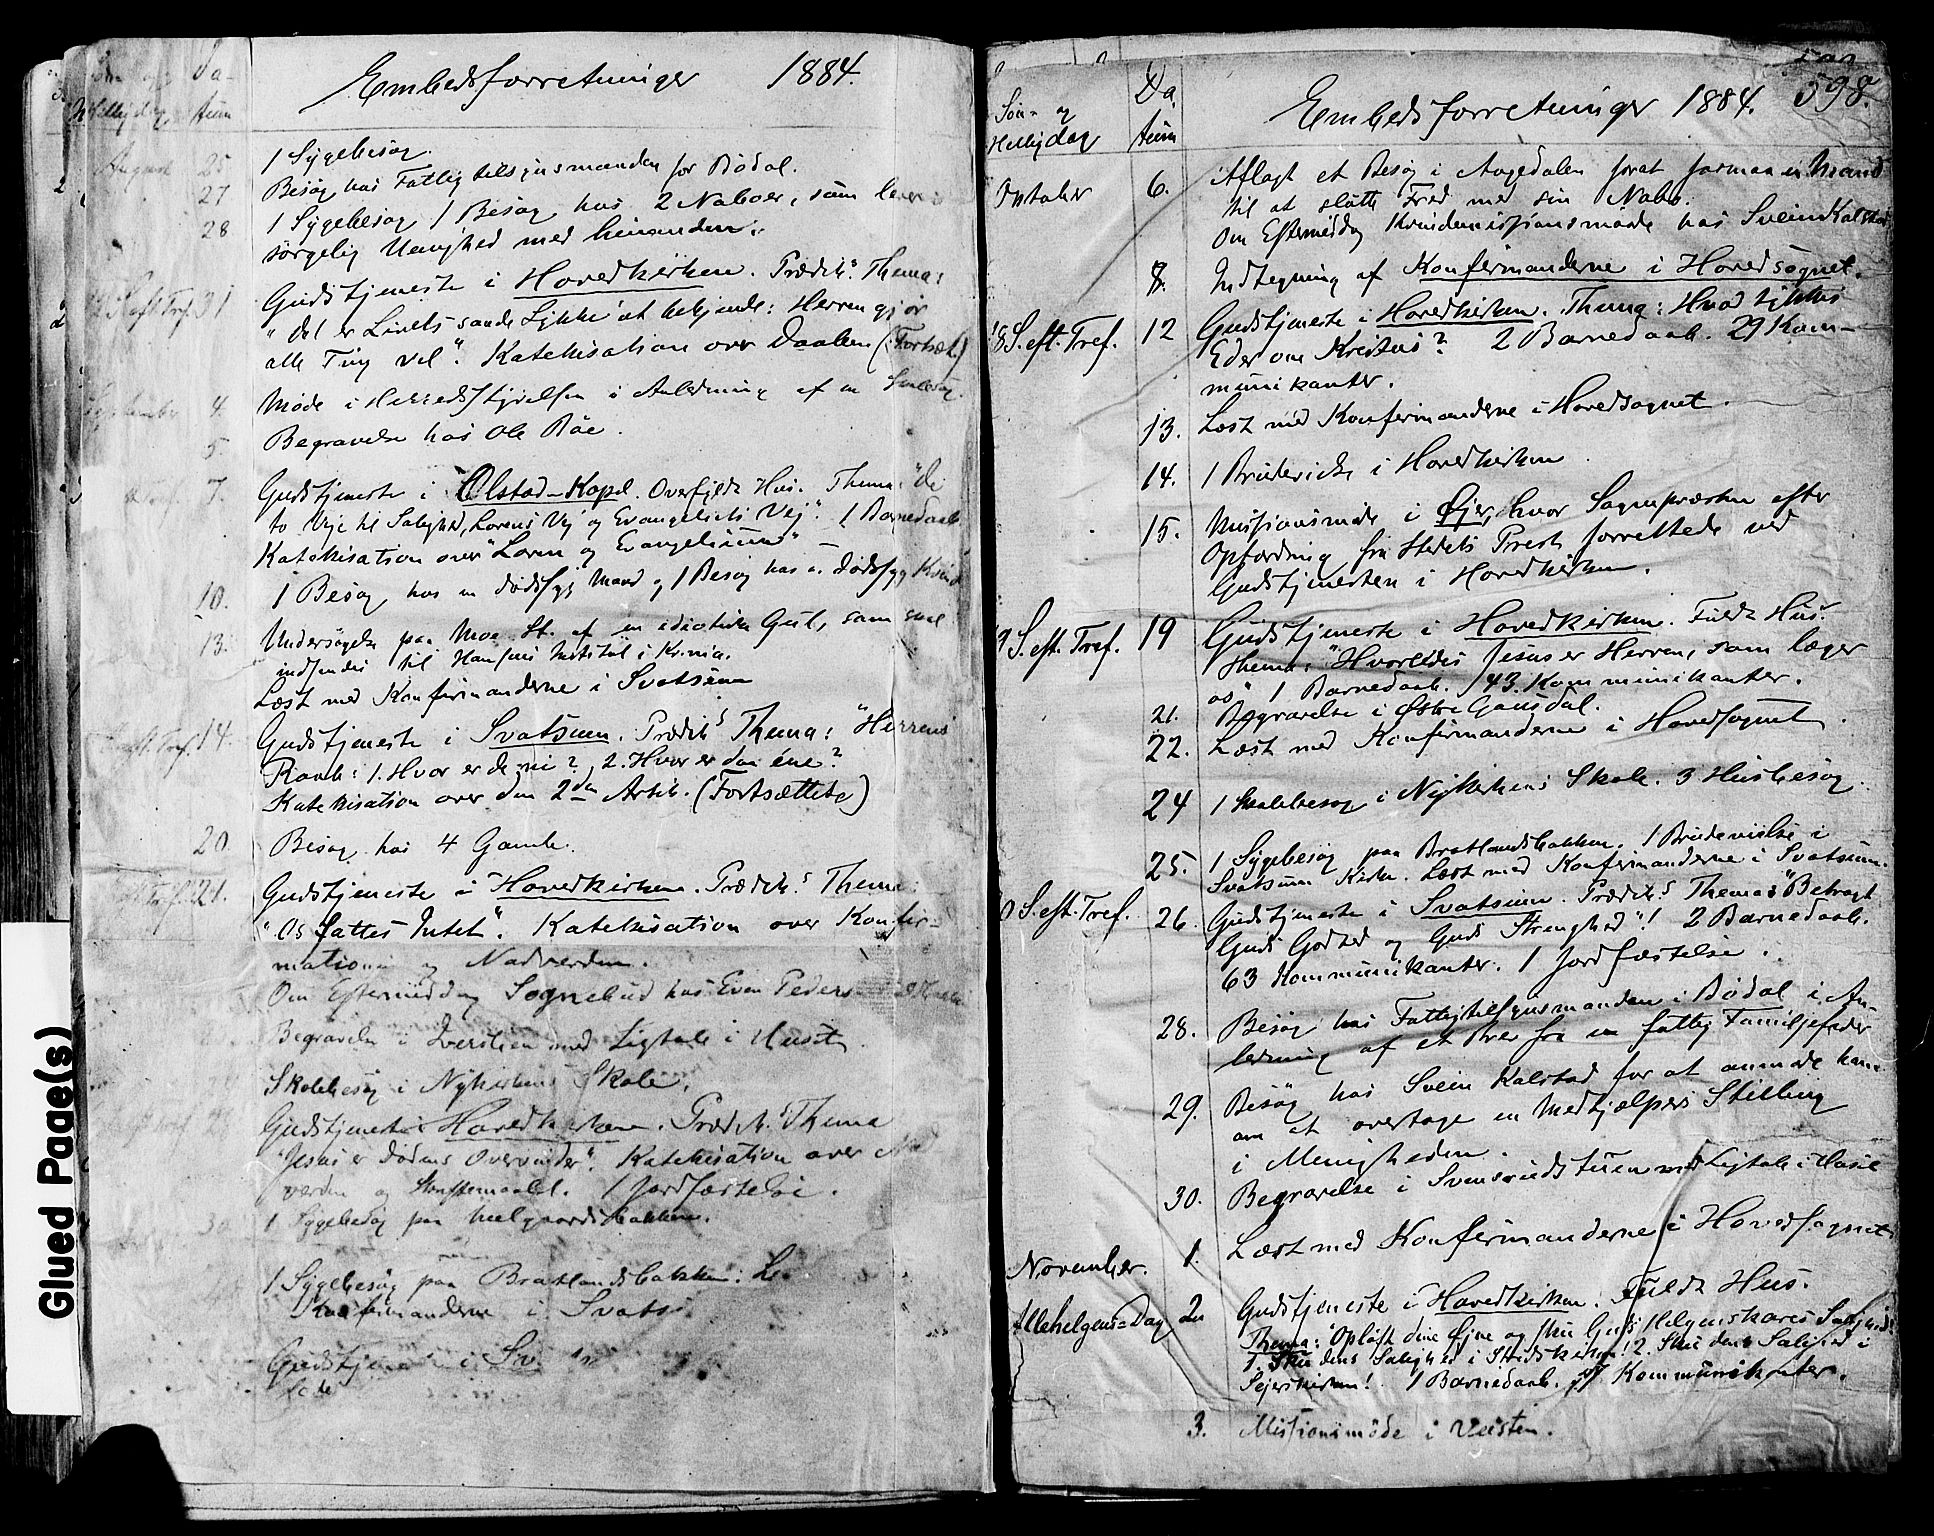 Embedsforretninger 1884.
Da-
tum
August 25 1 Sygebesøg.
27 Besøg hos Fattigtilsynsmanden for Bødal.
28 1 Sygebesøg 1 Besøg hos 2 Naboer, som lever i
sørgelig Uenighed med hinanden.
S. eft. Tref. 31 Gudstjeneste i Hovedkirken. Prædik. Thema:
"Det er Livets sande Lykke at bekjende: Herren gjør
alle Ting vel". Katekisation over Daaben (Fortsæt.)
September 4. Møde i Herredsstyrelsen i Anledning af en
5. Begravelse hos Ole Bøe.
7. Gudstjeneste i Olstad-Kapel. Overfyldt Hus. Thema: "De
to Veje til Salighed, Lovens Vej og Evangeliets Vej". 1 Barnedaab
Katekisation over "Loven og Evangelium"
10. 1 Besøg hos en dødssyg Mand og 1 Besøg hos en dødssyg Kvinde
13. Undersøgelse paa Moe St. af en idiotisk Gut, som skal
indsendes til Hansens Institut i Krinia.
Læst med Konfirmanderne i Svatsum
S. eft. Tref. 14. Gudstjeneste i Svatsum. Prædik.s Thema: "Herrens
Rovb: 1. Hvor er de ni? 2. Hvor er den éne?
Katekisation over den 2den Artik. (Fortsættelse)
20. Besøg hos 4 Gamle.
21. Gudstjeneste i Hovedkirken. Prædik.s Thema:
"Os fattes Intet". Katekisation over Konfir-
mationen og Nadverden.
Om Eftermiddag Sognebud hos Even Peders
Begravelse i Sverstuen med Ligtale i Huset.
Skolebesøg i Nykirkens Skole.
Gudstjeneste i Hovedkirken. Prædik.s Thema
"Jesus er Dødens Overvinder". Katekisation over Nad
verden og Skriftemaalet. 1 Jordfæstelse.
30 1 Sygebesøg paa
1 Sygebesøg paa Bratlandsbakken.
Konfirmanderne i Svatsu
Gudstjene i Sv
598.
Søn- og
Helligdag
Da
tum
Embedsforretninger 1884.
Oktober 6. Aflagt et Besøg i Augedalen forat formaa en Mand
til at slutte Fred med sin Nabo.
Om Eftermiddag Kvindemissionsmøde hos Svein Kalstad
8. Indtegning af Konfirmanderne i Hovedsognet.
18 S. eft. Tref. 12 Gudstjeneste i Hovedkirken. Thema: Hvad tykkes
Eder om Kristus? 2 Barnedaab. 29 Kom-
munikanter.
13. Læst med Konfirmanderne i Hovedsognet.
14. 1 Brudevielse i Hovedkirken.
15. Missionsmøde i Øjer, hvor Sognepræsten efter
Opfordring fra Stedets Prest forrettede ved
Gudstjenesten i Hovedkirken.
19 S. eft. Tref. 19 Gudstjeneste i Hovedkirken. Fuldt Hus.
Thema: "Hvorledes Jesus er Herren, som læger
os" 1 Barnedaab. 43. Kommunikanter.
21. Begravelse i Østre Gausdal.
22. Læst med Konfirmanderne i Hovedsognet.
24 1 Skolebesøg i Nykirkens Skole. 3 Husbesøg.
25. 1 Sygebesøg paa Bratlandsbakken. 1 Brudevielse i
Svatsum Kirke. Læst med Konfirmanderne i Svatsum.
0 S. eft. Tref. 26. Gudstjeneste i Svatsum. Prædik.s Thema: "Betragt
Guds Godhed og Guds Strenghed"! 2 Barnedaab.
63 Kommunikanter. 1 Jordfæstelse.
28. Besøg hos Fattigtilsynsmanden i Bødal i An-
ledning af et Brev fra en fattig Familjefader
29. Besøg hos Svein Kalstad for at anmode ham
om at overtage en Medhjælpers Stilling
i Menigheden.
30. Begravelse i Svensrudstuen med Ligtale i Huset
November. 1. Læst med Konfirmanderne i Hovedsognet
Allehelgens-Dag 2. Gudstjeneste i Hovedkirken. Fuldt Hus.
Thema: "Opløft dine Øjne og sku Guds Helgenskares Salighed!
1. Sku dens Salighed i Stridskirken! 2. Sku dens Salighed i
Sejerskirken! 1 Barnedaab. Kommunikanter.
3. Missionsmøde i Veisten.
Glued Page(s)